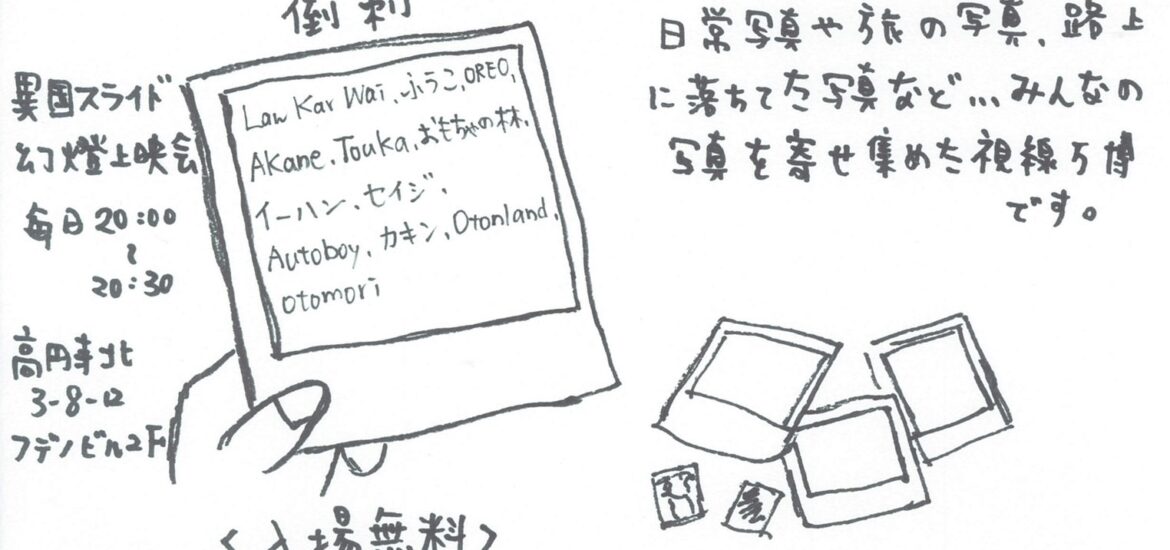 異国スライド
幻燈上映会
毎日20:00
〜
20:30
高円寺北
3-8-12
フデノビル2F
Law Kar Wai、ふうこ、OREO、
Akane、Touka、おもちゃの林、
イーハン、セイジ、
Autoboy、カキン、Otonland、
otomori
<入場無料>
日常写真や旅の写真、路上
に落ちてた写真など...みんなの
写真を寄せ集めた視線万博
です。